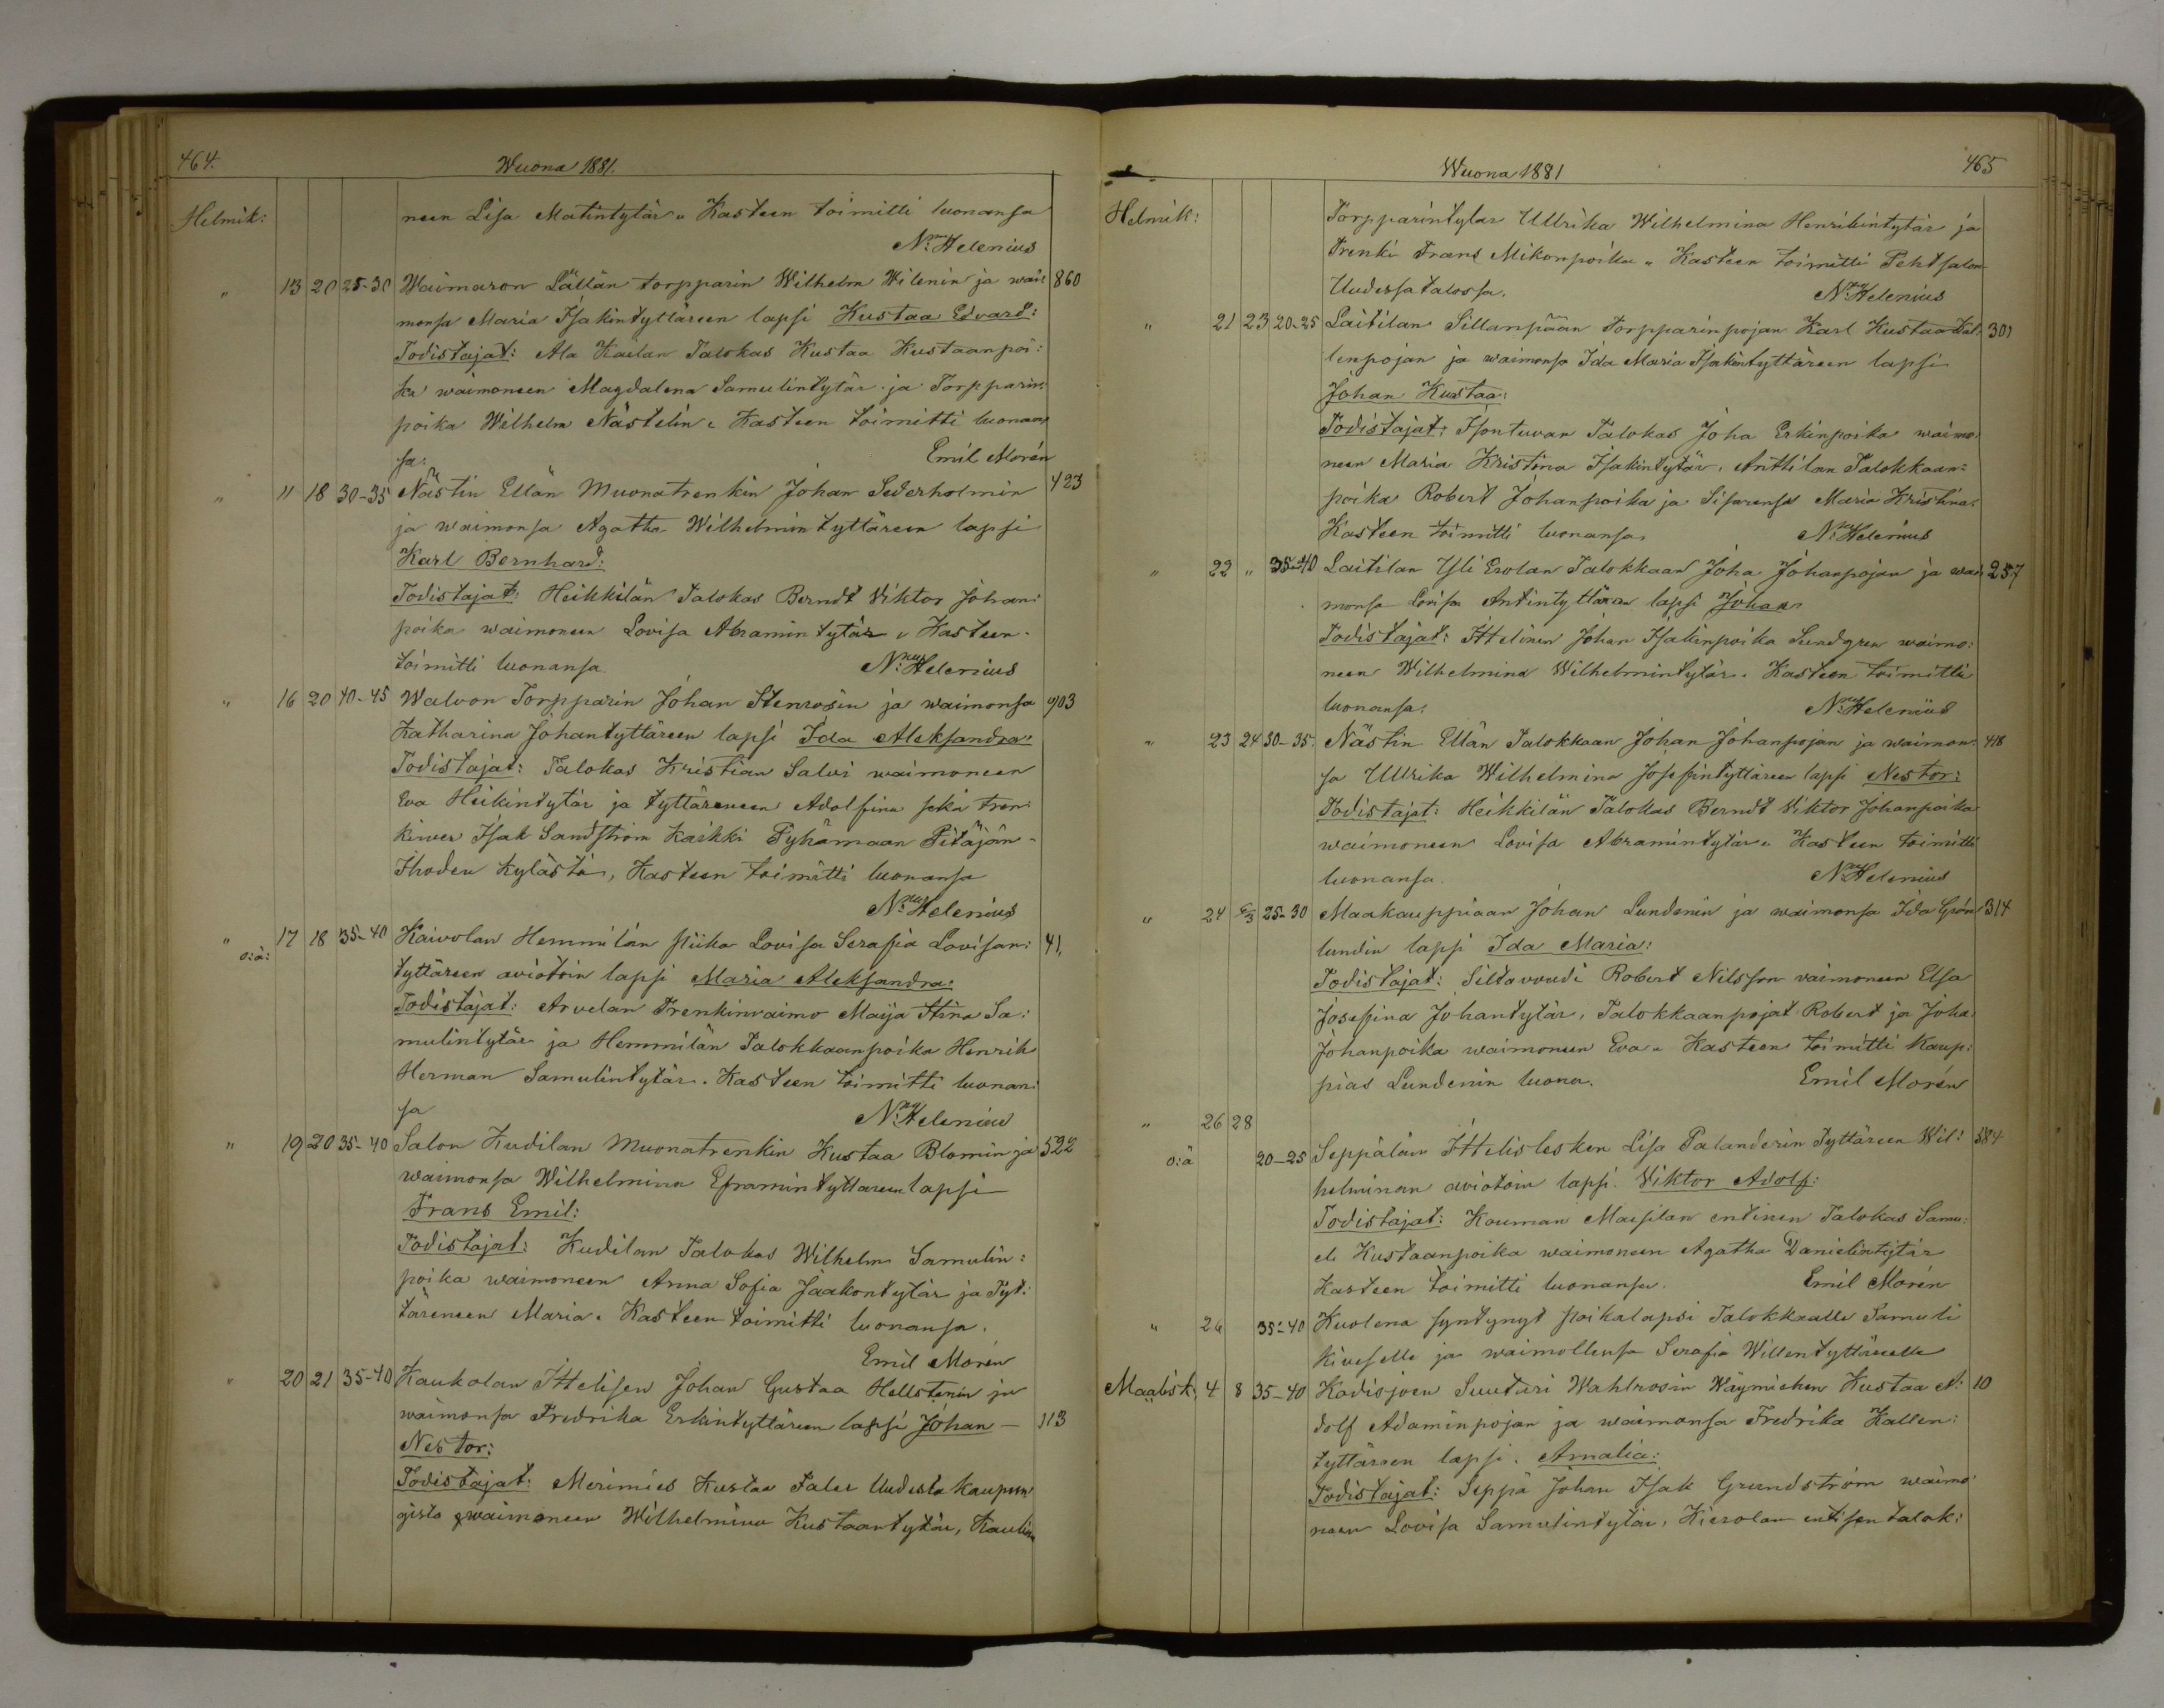 464.
Wuona 1881.
Helmik:
neen Lisa Matintytär „ Kasteen toimitti luonansa
N. Helenius
„ 13 20 25-30 Waimaron Lällän torpparin Wilhelm Wilenin ja wai: 860
monsa Maria Isakintyttäreen lapsi Kustaa Edvard:
Todistajat: Ala Kaelan Talokas Kustaa Kustaanpoi:
ka waimoneen Magdalena Samulintytär ja Torpparin:
poika Wilhelm Nästelin „ Kasteen toimitti luonan
sa: Emil Morén
„ 11 18 30-35 Nästin Ellän Muonatrenkin Johan Sederholmin 423
ja waimonsa Agatha Wilhelmintyttäreen lapsi
Karl Bernhard:
Todistajat: Heikkilän Talokas Berndt Viktor Johan:
poika waimoneen Lovisa Abramintytär „ Kasteen
toimitti luonansa. N. Helenius
„ 16 20 40-45 Walvon Torpparin Johan Stenrosin ja waimonsa 903
Katharina Johantyttäreen lapsi Ida Aleksandra:
Todistajat: Talokas Kristian Salvi waimoneen
Eva Heikintytär ja tyttäreneen Adolfina sekä tren:
kiwer Isak Sandström kaikki Pyhämaan Pitäjän
Ihoden kylästä, Kasteen toimitti luonansa
N. Helenius
„ o:ä: 17 18 35-40 Kaivolan Hemmilän piika Lovisa Serafia Lovisan: 41,
tyttäreen aviotoin lapsi Maria Aleksandra:
Todistajat: Arvelan Trenkinvaimo Maija Stina Sa:
mulintytär ja Hemmilän Talokkaanpoika Henrik
Herman Samulintytär. Kasteen toimitti luonan:
sa N. Helenius
„ 19 20 35-40 Salon Kudilan Muonatrenkin Kustaa Blomin ja 522
waimonsa Wilhelmina Eframintyttareen lapsi
Frans Emil:
Todistajat: Kudilan Talokas Wilhelm Samulin:
poika waimoneen Anna Sofia Jaakontytär ja Tyt:
täreneen Maria. Kasteen toimitti luonansa.
Emil Morén
„ 20 21 35-40 Kaukolan Ittelisen Johan Gustaa Hellstenin ja
waimonsa Fredrika Erkintyttäreen lapsi Johan — 113
Nestor:
Todistajat: Merimies Kustaa Uudesta kaupun
gista waimoneen Wilhelmina Kustaantytär,
Wuona 1881
465
Helmik:
Torpparintytar Ullrika Wilhelmina Henrikintytär ja
Trenki Frans Mikonpoika „ Kasteen toimitti Pehtsalon
Uudessa talossa. N. Helenius
„ 21 23 20-25 Laitilan Sillanpään Torpparinpojan Karl Kustaa Kal: 301
lenpojan ja waimonsa Ida Maria Isakintyttäreen lapsi
Johan Kustaa:
Todistajat: Isontuvan Talokas Joha Erkinpoika waimo
neen Maria Kristina Isakintytär. Anttilan Talokkaan:
poika Robert Johanpoika ja Sisarensa Maria Kristina.
Kasteen toimitti luonansa. N. Helenius
„ 22 „ 35-40 Laitilan Yli Erolan Talokkaan Joha Johanpojan ja wai 257
monsa Lovisa Antintyttären lapsi Johan:
Todistajat: Ittelinen Johan Isakinpoika Sundgren waimo:
neen Wilhelmina Wilhelmintytär. Kasteen toimitti
luonansa. N. Helenius
„ 23 24 30-35 Nästin Ellän Talokkaan Johan Johanpojan ja waimon: 418
sa Ullrika Wilhelmina Josefintyttäreen lapsi Nestor:
Todistajat: Heikkilän Talokas Berndt Viktor Johanpoika
waimoneen Lovisa Abramintytär „ Kasteen toimitti
luonansa. N. Helenius
„ 24 5/3 25-30 Maakauppiaan Johan Lundenin ja waimonsa Ida Grön 314
lundin lapsi Ida Maria:
Todistajat: Siltavoudi Robert Nilsson vaimoneen Elsa
Josefina Johantytär, Talokkaanpojat Robert ja Joha
Johanpoika waimoneen Eva „ Kasteen toimitti Kaup:
pias Lundenin luona. Emil Morén
„ 26 28
o:ä 20-25 Seppälän Ittelislesken Lisa Palanderin Tyttäreen Wil: 384
helminan aviotoin lapsi. Viktor Adolf:
Todistajat: Kouman Maesilan entinen Talokas Samu:
eli Kustaanpoika waimoneen Agatha Danielintytär
Kasteen toimitti luonansa. Emil Morén
„ 26 35-40 Kuolena syntynyt poikalapsi Talokkaalle Samuli
Kiveselle ja waimollensa Serafia Willentyttärelle
Maalisk, 4 8 35-40 Kodisjoen Suuturi Wahlrosin Wäymiehen Kustaa A: 10
dolf Adaminpojan ja waimonsa Fredrika Kallen:
tyttäreen lapsi. Amalia:
Todistajat: Seppä Johan Isak Grundström waimo
neen Lovisa Samulintytär, Kierolan entisen talok: